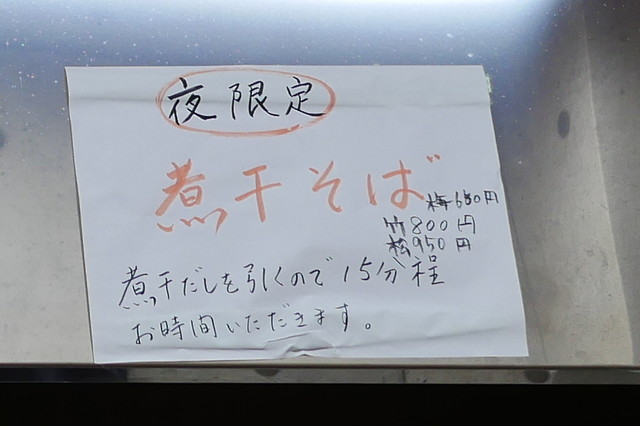 夜限定
煮干そば
梅650円
竹800円
松950円
煮干だしを引くので15分程
お時間いただきます。